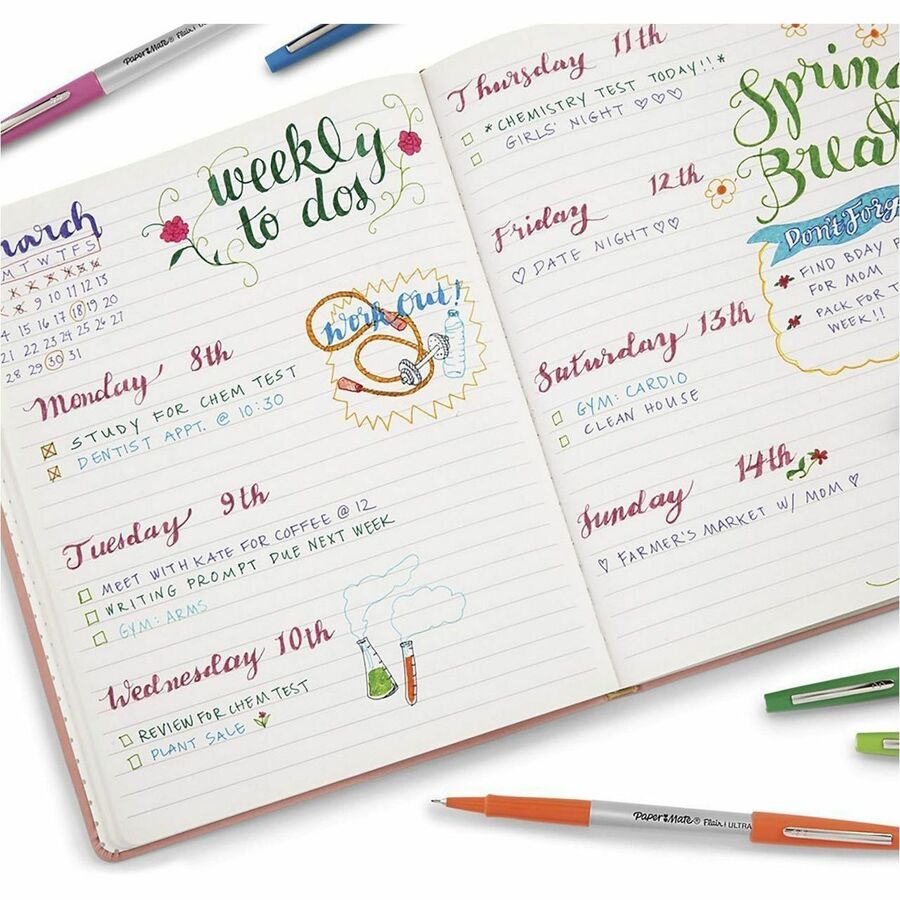 Paper Mate® Flair
weekly
to dos
march
M T W T F S
9 10 11 12 13
15 16 17 18 19 20
21 22 23 24 25 26 27
28 29 30 31
Work Out!
Monday 8th
STUDY FOR CHEM TEST
DENTIST APPT. @ 10:30
Tuesday 9th
MEET WITH KATE FOR COFFEE @ 12
WRITING PROMPT DUE NEXT WEEK
GYM: ARMS
Wednesday 10th
REVIEW FOR CHEM TEST
PLANT SALE
Thursday 11th
*CHEMISTRY TEST TODAY!!*
GIRLS' NIGHT ♡♡♡
Friday 12th
♡ DATE NIGHT ♡♡
Saturday 13th
GYM: CARDIO
CLEAN HOUSE
Sunday 14th
♡ FARMER'S MARKET W/ MOM ♡
Spring
Break
Don't Forg
FIND BDAY P
FOR MOM
PACK FOR T
WEEK!!
Paper Mate® Flair ULTRA